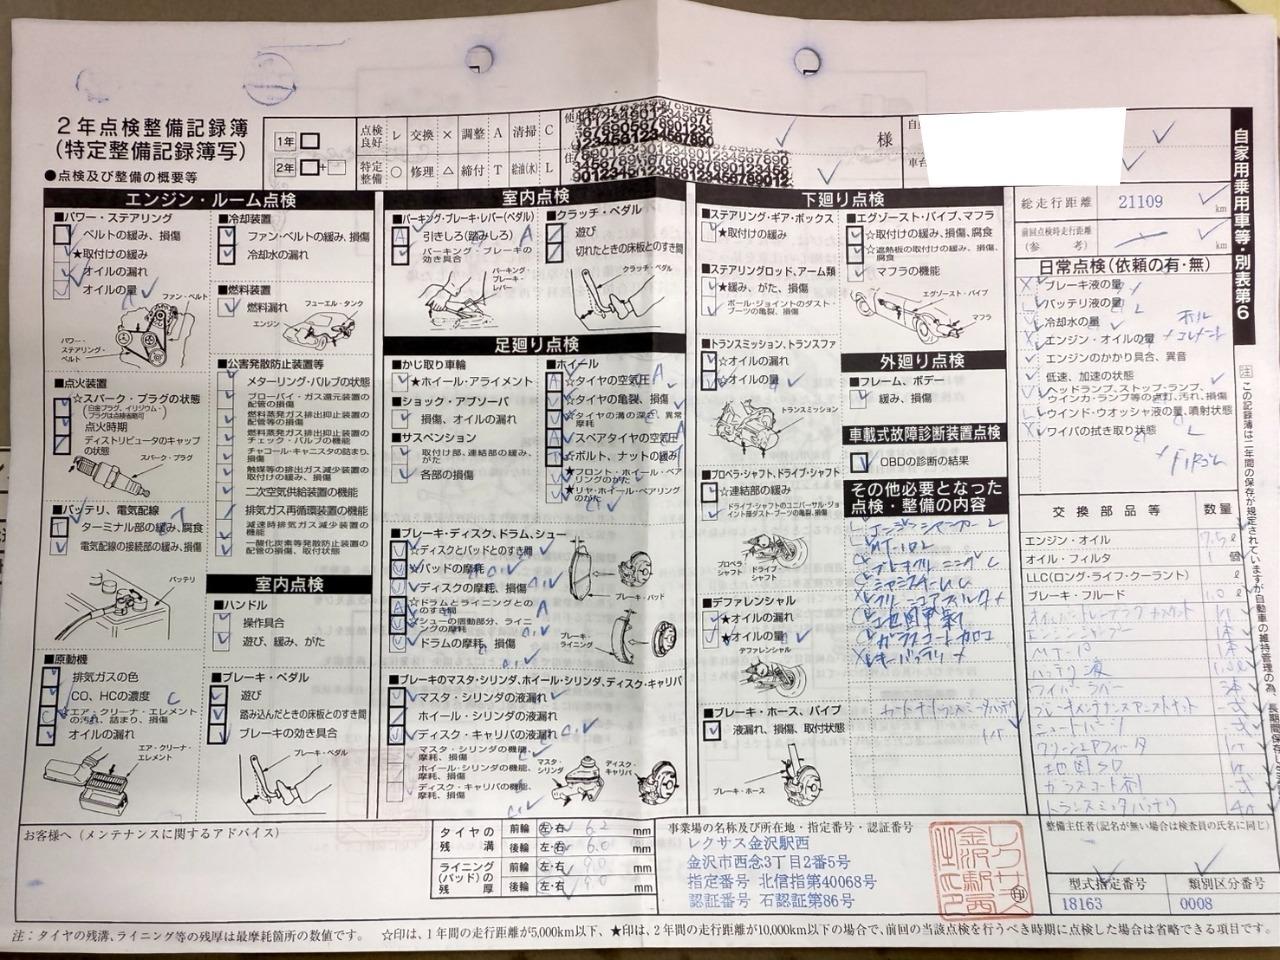 2年点検整備記録簿
(特定整備記録簿写)
●点検及び整備の概要等
1年
2年 +
点検良好 レ 交換 × 調整 A 清掃 C
特定整備 ○ 修理 △ 締付 T 給油(水) L
様
自家用乗用車等・別表第6
総走行距離 21109 km
前回点検時走行距離
(参 考) km
エンジン・ルーム点検
■パワー・ステアリング
ベルトの緩み、損傷
★取付けの緩み
オイルの漏れ
オイルの量
ファン・ベルト
パワー・ステアリング・ベルト
■点火装置
☆スパーク・プラグの状態
点火時期
ディストリビュータのキャップの状態
スパーク・プラグ
■バッテリ、電気配線
ターミナル部の緩み、腐食
電気配線の接続部の緩み、損傷
バッテリ
■原動機
排気ガスの色
CO、HCの濃度 C
☆エア・クリーナ・エレメントの汚れ、詰まり、損傷
オイルの漏れ
エア・クリーナ・エレメント
■冷却装置
ファン・ベルトの緩み、損傷
冷却水の漏れ
■燃料装置
燃料漏れ
フューエル・タンク
エンジン
■公害発散防止装置等
メターリング・バルブの状態
ブローバイ・ガス還元装置の配管の損傷
燃料蒸発ガス排出抑止装置の配管等の損傷
燃料蒸発ガス排出抑止装置のチェック・バルブの機能
チャコール・キャニスタの詰まり、損傷
触媒等の排出ガス減少装置の取付けの緩み、損傷
二次空気供給装置の機能
排気ガス再循環装置の機能
減速時排気ガス減少装置の機能
一酸化炭素等発散防止装置の配管の損傷、取付状態
室内点検
■ハンドル
操作具合
遊び、緩み、がた
■ブレーキ・ペダル
遊び
踏み込んだときの床板とのすき間
ブレーキの効き具合
ブレーキ・ペダル
室内点検
■パーキング・ブレーキ・レバー(ペダル)
引きしろ(踏みしろ) A
パーキング・ブレーキの効き具合
パーキング・ブレーキ・レバー
■クラッチ・ペダル
遊び
切れたときの床板とのすき間
クラッチ・ペダル
足廻り点検
■かじ取り車輪
★ホイール・アライメント
■ショック・アブソーバ
損傷、オイルの漏れ
■サスペンション
取付け部、連結部の緩み、がた
各部の損傷
■ホイール
☆タイヤの空気圧 A
☆タイヤの亀裂、損傷
☆タイヤの溝の深さ、異常摩耗
スペアタイヤの空気圧
☆ボルト、ナットの緩み
★フロント・ホイール・ベアリングのがた
★リヤ・ホイール・ベアリングのがた
■ブレーキ・ディスク、ドラム、シュー
☆ディスクとパッドとのすき間
☆パッドの摩耗
ディスクの摩耗、損傷
☆ドラムとライニングとのすき間 A
☆シューの摺動部分、ライニングの摩耗
ドラムの摩耗、損傷
ブレーキ・パッド
ブレーキ・ライニング
■ブレーキのマスタ・シリンダ、ホイール・シリンダ、ディスク・キャリパ
マスタ・シリンダの液漏れ
ホイール・シリンダの液漏れ
ディスク・キャリパの液漏れ
マスタ・シリンダの機能、摩耗、損傷
ホイール・シリンダの機能、摩耗、損傷
ディスク・キャリパの機能、摩耗、損傷
マスタ・シリンダ
ディスク・キャリパ
下廻り点検
■ステアリング・ギア・ボックス
★取付けの緩み
■ステアリングロッド、アーム類
★緩み、がた、損傷
ボール・ジョイントのダスト・ブーツの亀裂、損傷
■トランスミッション、トランスファ
☆オイルの漏れ
☆オイルの量
トランスミッション
■プロペラ・シャフト、ドライブ・シャフト
☆連結部の緩み
ドライブ・シャフトのユニバーサル・ジョイント部ダスト・ブーツの亀裂、損傷
プロペラ・シャフト
ドライブ・シャフト
■デファレンシャル
★オイルの漏れ
★オイルの量
デファレンシャル
■ブレーキ・ホース、パイプ
液漏れ、損傷、取付状態
ブレーキ・ホース
■エグゾースト・パイプ、マフラ
☆取付けの緩み、損傷、腐食
☆遮熱板の取付けの緩み、損傷、腐食
マフラの機能
エグゾースト・パイプ
マフラ
外廻り点検
■フレーム、ボデー
緩み、損傷
車載式故障診断装置点検
OBDの診断の結果
その他必要となった点検・整備の内容
MT-10 L
地図更新
ガラスコート加工
キーバッテリ ×
日常点検(依頼の有・無)
ブレーキ液の量
バッテリ液の量
冷却水の量
エンジン・オイルの量
エンジンのかかり具合、異音
低速、加速の状態
ヘッドランプ、ストップ・ランプ、ウインカ・ランプ等の点灯、汚れ、損傷
ウインド・ウオッシャ液の量、噴射状態
ワイパの拭き取り状態
交換部品等 数量
エンジン・オイル 7.5 ℓ
オイル・フィルタ 1 個
LLC(ロング・ライフ・クーラント) ℓ
ブレーキ・フルード 1.0 ℓ
MT-10
バッテリ液
ワイパーラバー
ブレーキメンテナンスアシストキット
クリーンエアフィルタ
地図SD
ガラスコート剤
注 この記録簿は二年間の保存が規定されていますが自動車の維持管理の為、長期間保存して
お客様へ (メンテナンスに関するアドバイス)
タイヤの残溝 前輪 左・右 6.2 mm
後輪 左・右 6.0 mm
ライニング(パッド)の残厚 前輪 左・右 9.0 mm
後輪 左・右 9.0 mm
事業場の名称及び所在地・指定番号・認証番号
レクサス金沢駅西
金沢市西念3丁目2番5号
指定番号 北信指第40068号
認証番号 石認証第86号
レクサス金沢駅西之印
㊞
整備主任者(記名が無い場合は検査員の氏名に同じ)
型式指定番号 類別区分番号
18163 0008
注:タイヤの残溝、ライニング等の残厚は最摩耗箇所の数値です。 ☆印は、1年間の走行距離が5,000km以下、★印は、2年間の走行距離が10,000km以下の場合で、前回の当該点検を行うべき時期に点検した場合は省略できる項目です。